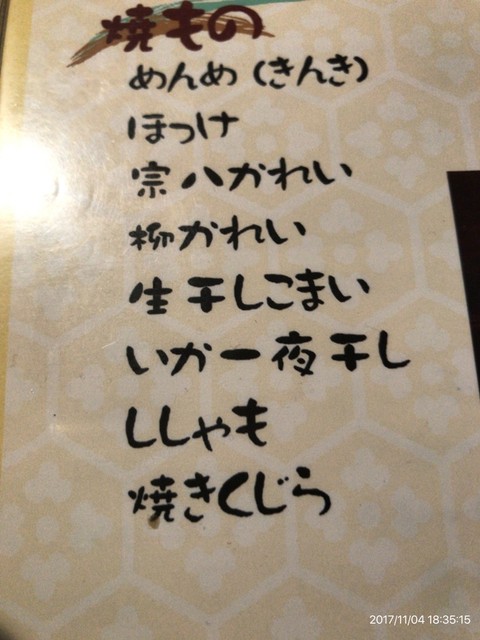 焼もの
めんめ（きんき）
ほっけ
宗八かれい
柳かれい
生干しこまい
いか一夜干し
ししゃも
焼きくじら
2017/11/04 18:35:15